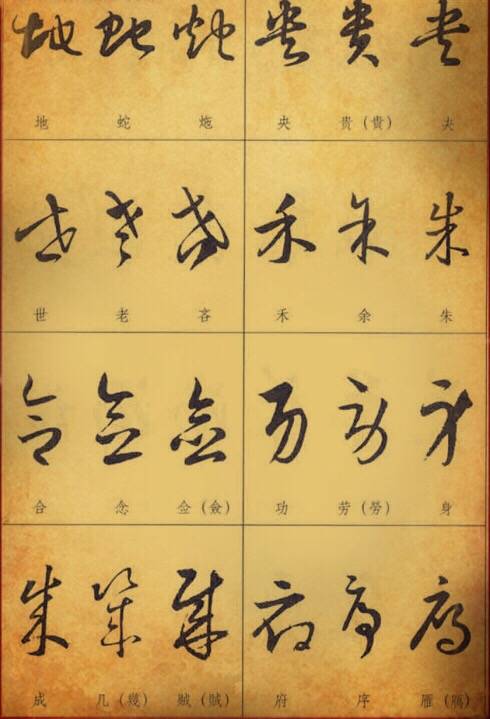 地 蛇 炧 央 贵（貴） 夬
世 老 吝 禾 余 朱
合 念 佥（僉） 功 劳（勞） 身
成 几（幾） 贼（賊） 府 序 雁（鴈）